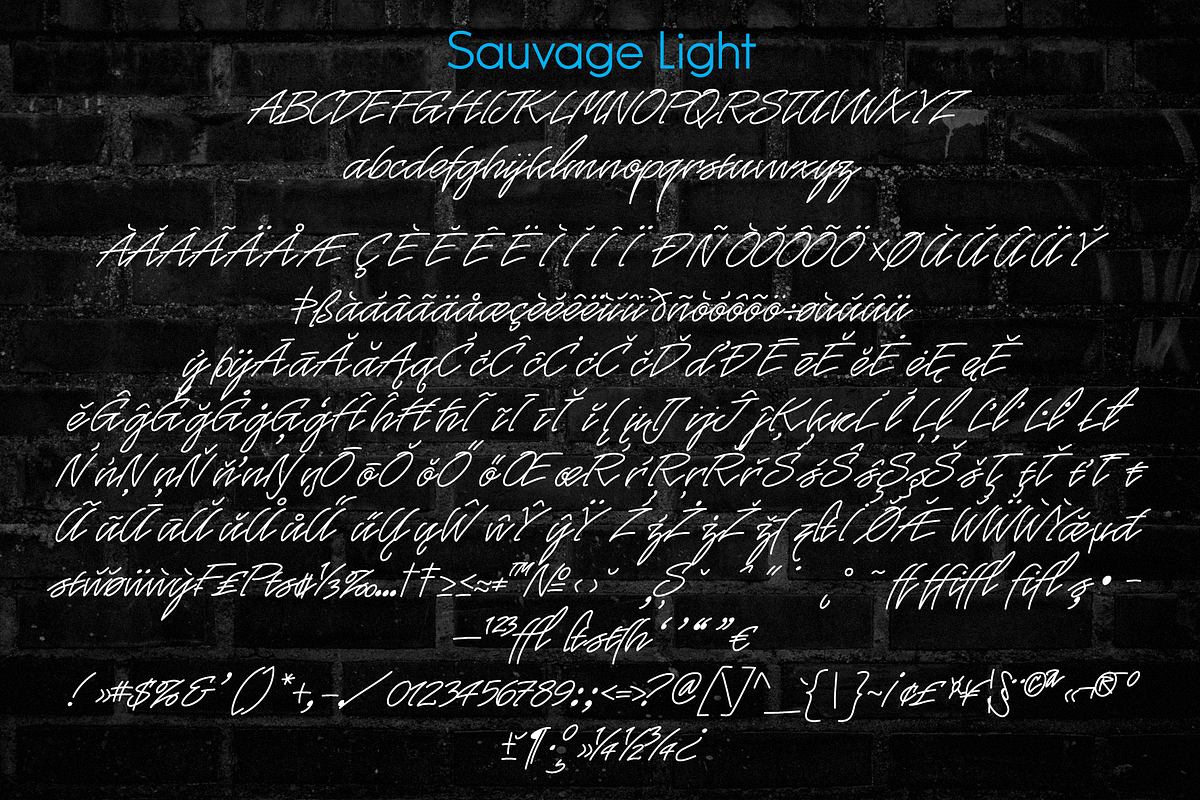 Sauvage Light
ABCDEFGHIJKLMNOPQRSTUVWXYZ
abcdefghijklmnopqrstuvwxyz
ÀÁÂÃÄÅÆ ÇÈÉÊË ÌÍÎÏ ÐÑÒÓÔÕÖ×ØÙÚÛÜÝ
Þßàáâãäåæçèéêëìíîïðñòóôõö÷øùúûü
ýþÿĀāĂăĄąĆćĈĉĊċČčĎďĐĒēĔĕĖėĘęĚ
ěĜĝĞğĠġĢģĤĥĦħĨĩĪīĬĭĮįĲĳĴĵĶķĸĹĺĻļĽľĿŀŁł
ŃńŅņŇňŉŊŋŌōŎŏŐőŒœŔŕŖŗŘřŚśŜŝŞşŠšŢţŤťŦŧ
ŨũŪūŬŭŮůŰűŲųŴŵŶŷŸŹźŻżŽž
fffiffl fifl
—¹²³ffl ‘’“”€
!»#$%&'()*+,-./0123456789:;<=>?@[\]^_`{|}~¡¢£¤¥¦§¨©ª«¬®¯°
±¶·¸º»¼½¾¿